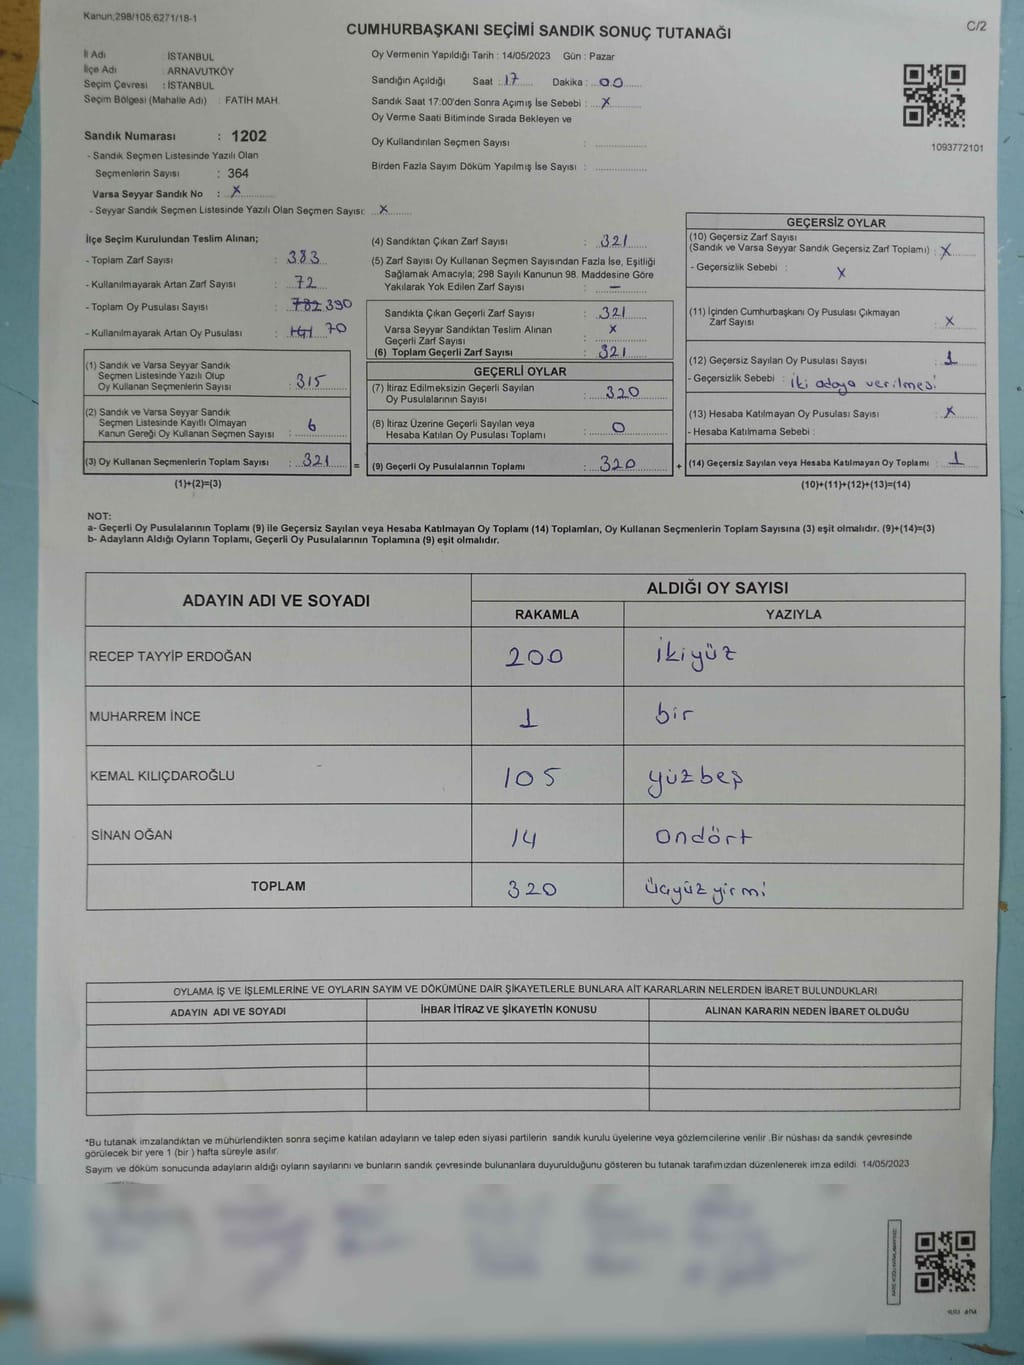 Kanun,298/105,6271/18-1
C/2
CUMHURBAŞKANI SEÇİMİ SANDIK SONUÇ TUTANAĞI
İl Adı : İSTANBUL
İlçe Adı : ARNAVUTKÖY
Seçim Çevresi : İSTANBUL
Seçim Bölgesi (Mahalle Adı) : FATİH MAH.
Sandık Numarası : 1202
- Sandık Seçmen Listesinde Yazılı Olan
Seçmenlerin Sayısı : 364
Varsa Seyyar Sandık No : x
- Seyyar Sandık Seçmen Listesinde Yazılı Olan Seçmen Sayısı: x
Oy Vermenin Yapıldığı Tarih : 14/05/2023 Gün : Pazar
Sandığın Açıldığı Saat : 17 Dakika : 00
Sandık Saat 17:00'den Sonra Açımış İse Sebebi : x
Oy Verme Saati Bitiminde Sırada Bekleyen ve
Oy Kullandırılan Seçmen Sayısı :
Birden Fazla Sayım Döküm Yapılmış İse Sayısı :
1093772101
İlçe Seçim Kurulundan Teslim Alınan;
- Toplam Zarf Sayısı : 383
- Kullanılmayarak Artan Zarf Sayısı : 72
- Toplam Oy Pusulası Sayısı : 782 390
- Kullanılmayarak Artan Oy Pusulası : 70
(1) Sandık ve Varsa Seyyar Sandık
Seçmen Listesinde Yazılı Olup
Oy Kullanan Seçmenlerin Sayısı : 315
(2) Sandık ve Varsa Seyyar Sandık
Seçmen Listesinde Kayıtlı Olmayan
Kanun Gereği Oy Kullanan Seçmen Sayısı : 6
(3) Oy Kullanan Seçmenlerin Toplam Sayısı : 321 =
(1)+(2)=(3)
(4) Sandıktan Çıkan Zarf Sayısı : 321
(5) Zarf Sayısı Oy Kullanan Seçmen Sayısından Fazla İse, Eşitliği
Sağlamak Amacıyla; 298 Sayılı Kanunun 98. Maddesine Göre
Yakılarak Yok Edilen Zarf Sayısı : —
Sandıkta Çıkan Geçerli Zarf Sayısı : 321
Varsa Seyyar Sandıktan Teslim Alınan x
Geçerli Zarf Sayısı :
(6) Toplam Geçerli Zarf Sayısı : 321
GEÇERLİ OYLAR
(7) İtiraz Edilmeksizin Geçerli Sayılan
Oy Pusulalarının Sayısı : 320
(8) İtiraz Üzerine Geçerli Sayılan veya
Hesaba Katılan Oy Pusulası Toplamı : 0
(9) Geçerli Oy Pusulalarının Toplamı : 320 +
GEÇERSİZ OYLAR
(10) Geçersiz Zarf Sayısı
(Sandık ve Varsa Seyyar Sandık Geçersiz Zarf Toplamı) : x
- Geçersizlik Sebebi : x
(11) İçinden Cumhurbaşkanı Oy Pusulası Çıkmayan
Zarf Sayısı : x
(12) Geçersiz Sayılan Oy Pusulası Sayısı : 1
- Geçersizlik Sebebi : iki adaya verilmesi
(13) Hesaba Katılmayan Oy Pusulası Sayısı : x
- Hesaba Katılmama Sebebi :
(14) Geçersiz Sayılan veya Hesaba Katılmayan Oy Toplamı : 1
(10)+(11)+(12)+(13)=(14)
NOT:
a- Geçerli Oy Pusulalarının Toplamı (9) ile Geçersiz Sayılan veya Hesaba Katılmayan Oy Toplamı (14) Toplamları, Oy Kullanan Seçmenlerin Toplam Sayısına (3) eşit olmalıdır. (9)+(14)=(3)
b- Adayların Aldığı Oyların Toplamı, Geçerli Oy Pusulalarının Toplamına (9) eşit olmalıdır.
ADAYIN ADI VE SOYADI ALDIĞI OY SAYISI
RAKAMLA YAZIYLA
RECEP TAYYİP ERDOĞAN 200 ikiyüz
MUHARREM İNCE 1 bir
KEMAL KILIÇDAROĞLU 105 yüzbeş
SİNAN OĞAN 14 ondört
TOPLAM 320 üçyüzyirmi
OYLAMA İŞ VE İŞLEMLERİNE VE OYLARIN SAYIM VE DÖKÜMÜNE DAİR ŞİKAYETLERLE BUNLARA AİT KARARLARIN NELERDEN İBARET BULUNDUKLARI
ADAYIN ADI VE SOYADI İHBAR İTİRAZ VE ŞİKAYETİN KONUSU ALINAN KARARIN NEDEN İBARET OLDUĞU
*Bu tutanak imzalandıktan ve mühürlendikten sonra seçime katılan adayların ve talep eden siyasi partilerin sandık kurulu üyelerine veya gözlemcilerine verilir .Bir nüshası da sandık çevresinde
görülecek bir yere 1 (bir ) hafta süreyle asılır.
Sayım ve döküm sonucunda adayların aldığı oyların sayılarını ve bunların sandık çevresinde bulunanlara duyurulduğunu gösteren bu tutanak tarafımızdan düzenlenerek imza edildi. 14/05/2023